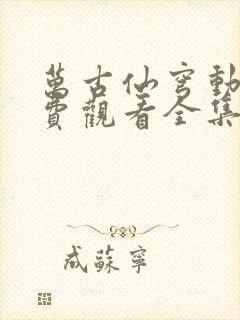 萬古仙穹動
費觀看全集
成蘇寧